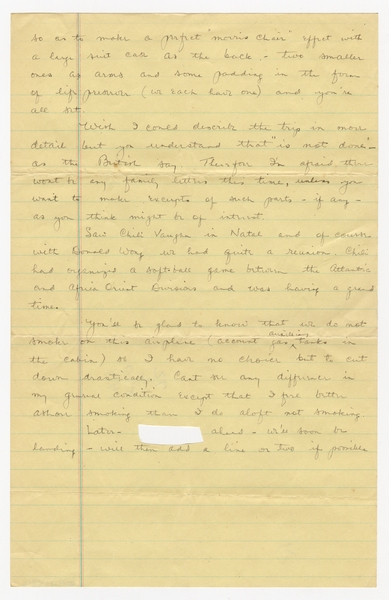 so as to make a perfect "morris chair" effect with
a large suit case as the back - two smaller
ones as arms and some padding in the form
of life preserver (we each have one) and you're
all set.
Wish I could describe the trip in more
detail but you understand that "is not done"
as the British say. Therefore I'm afraid there
wont be any family letters this time, unless you
want to make excerpts of such parts - if any -
as you think might be of interest.
Saw Chili Vaughn in Natal and of course
with Donald Wong we had quite a reunion. Chili
had organized a softball game between the Atlantic
and Africa Orient Divisions and was having a grand
time.
You'll be glad to know that we do not
smoke on this airplane (account gas tanks in
the cabin) so I have no choice but to cut
down drastically. Cant see any difference in
my general condition except that I feel better
ashore smoking than I do aloft not smoking
Later - ahead - we'll soon be
landing - will then add a line or two if possible